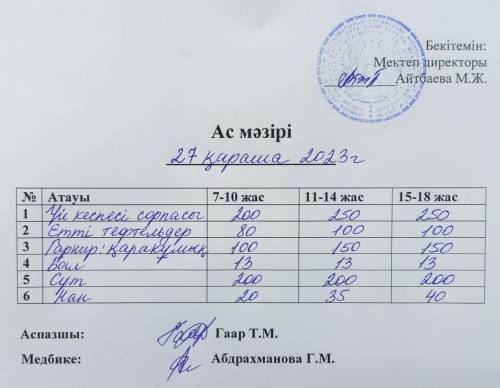 Бекітемін:
Мектеп директоры
Айтбаева М.Ж.
Ас мәзірі
27 қараша 2023г
№ Атауы 7-10 жас 11-14 жас 15-18 жас
1 Үй кеспесі сорпасы 200 250 250
2 Етті тефтельдер 80 100 100
3 Гарнир: қарақұмық 100 150 150
4 Бал 13 13 13
5 Сүт 200 200 200
6 Нан 20 35 40
Аспазшы: Гаар Т.М.
Медбике: Абдрахманова Г.М.